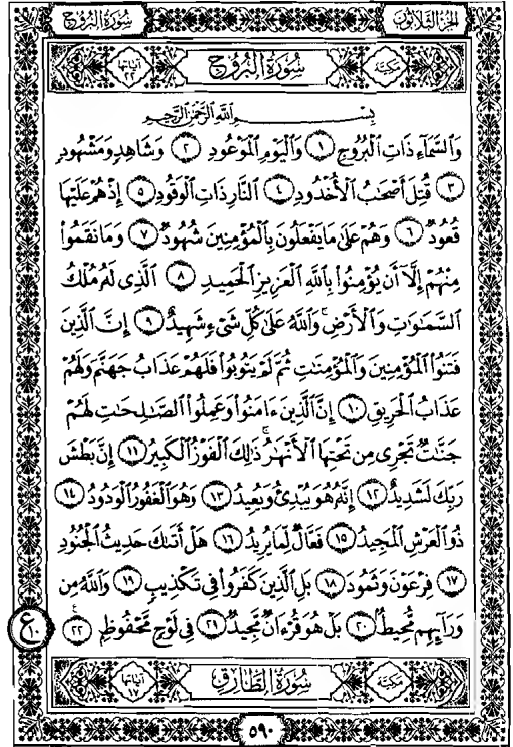 الجزء الثلاثون سورة البروج
مكية سُورَةُ البُرُوجِ آياتها ٢٢
بِسْمِ اللَّهِ الرَّحْمَٰنِ الرَّحِيمِ
وَٱلسَّمَآءِ ذَاتِ ٱلْبُرُوجِ ١ وَٱلْيَوْمِ ٱلْمَوْعُودِ ٢ وَشَاهِدٍ وَمَشْهُودٍ
٣ قُتِلَ أَصْحَٰبُ ٱلْأُخْدُودِ ٤ ٱلنَّارِ ذَاتِ ٱلْوَقُودِ ٥ إِذْ هُمْ عَلَيْهَا
قُعُودٌ ٦ وَهُمْ عَلَىٰ مَا يَفْعَلُونَ بِٱلْمُؤْمِنِينَ شُهُودٌ ٧ وَمَا نَقَمُوا۟
مِنْهُمْ إِلَّآ أَن يُؤْمِنُوا۟ بِٱللَّهِ ٱلْعَزِيزِ ٱلْحَمِيدِ ٨ ٱلَّذِى لَهُۥ مُلْكُ
ٱلسَّمَٰوَٰتِ وَٱلْأَرْضِ ۚ وَٱللَّهُ عَلَىٰ كُلِّ شَىْءٍ شَهِيدٌ ٩ إِنَّ ٱلَّذِينَ
فَتَنُوا۟ ٱلْمُؤْمِنِينَ وَٱلْمُؤْمِنَٰتِ ثُمَّ لَمْ يَتُوبُوا۟ فَلَهُمْ عَذَابُ جَهَنَّمَ وَلَهُمْ
عَذَابُ ٱلْحَرِيقِ ١٠ إِنَّ ٱلَّذِينَ ءَامَنُوا۟ وَعَمِلُوا۟ ٱلصَّٰلِحَٰتِ لَهُمْ
جَنَّٰتٌ تَجْرِى مِن تَحْتِهَا ٱلْأَنْهَٰرُ ۚ ذَٰلِكَ ٱلْفَوْزُ ٱلْكَبِيرُ ١١ إِنَّ بَطْشَ
رَبِّكَ لَشَدِيدٌ ١٢ إِنَّهُۥ هُوَ يُبْدِئُ وَيُعِيدُ ١٣ وَهُوَ ٱلْغَفُورُ ٱلْوَدُودُ ١٤
ذُو ٱلْعَرْشِ ٱلْمَجِيدُ ١٥ فَعَّالٌ لِّمَا يُرِيدُ ١٦ هَلْ أَتَىٰكَ حَدِيثُ ٱلْجُنُودِ
١٧ فِرْعَوْنَ وَثَمُودَ ١٨ بَلِ ٱلَّذِينَ كَفَرُوا۟ فِى تَكْذِيبٍ ١٩ وَٱللَّهُ مِن
وَرَآئِهِم مُّحِيطٌ ٢٠ بَلْ هُوَ قُرْءَانٌ مَّجِيدٌ ٢١ فِى لَوْحٍ مَّحْفُوظٍ ٢٢
ع ١٠
مكية سُورَةُ الطَّارِقِ آياتها ١٧
٥٩٠